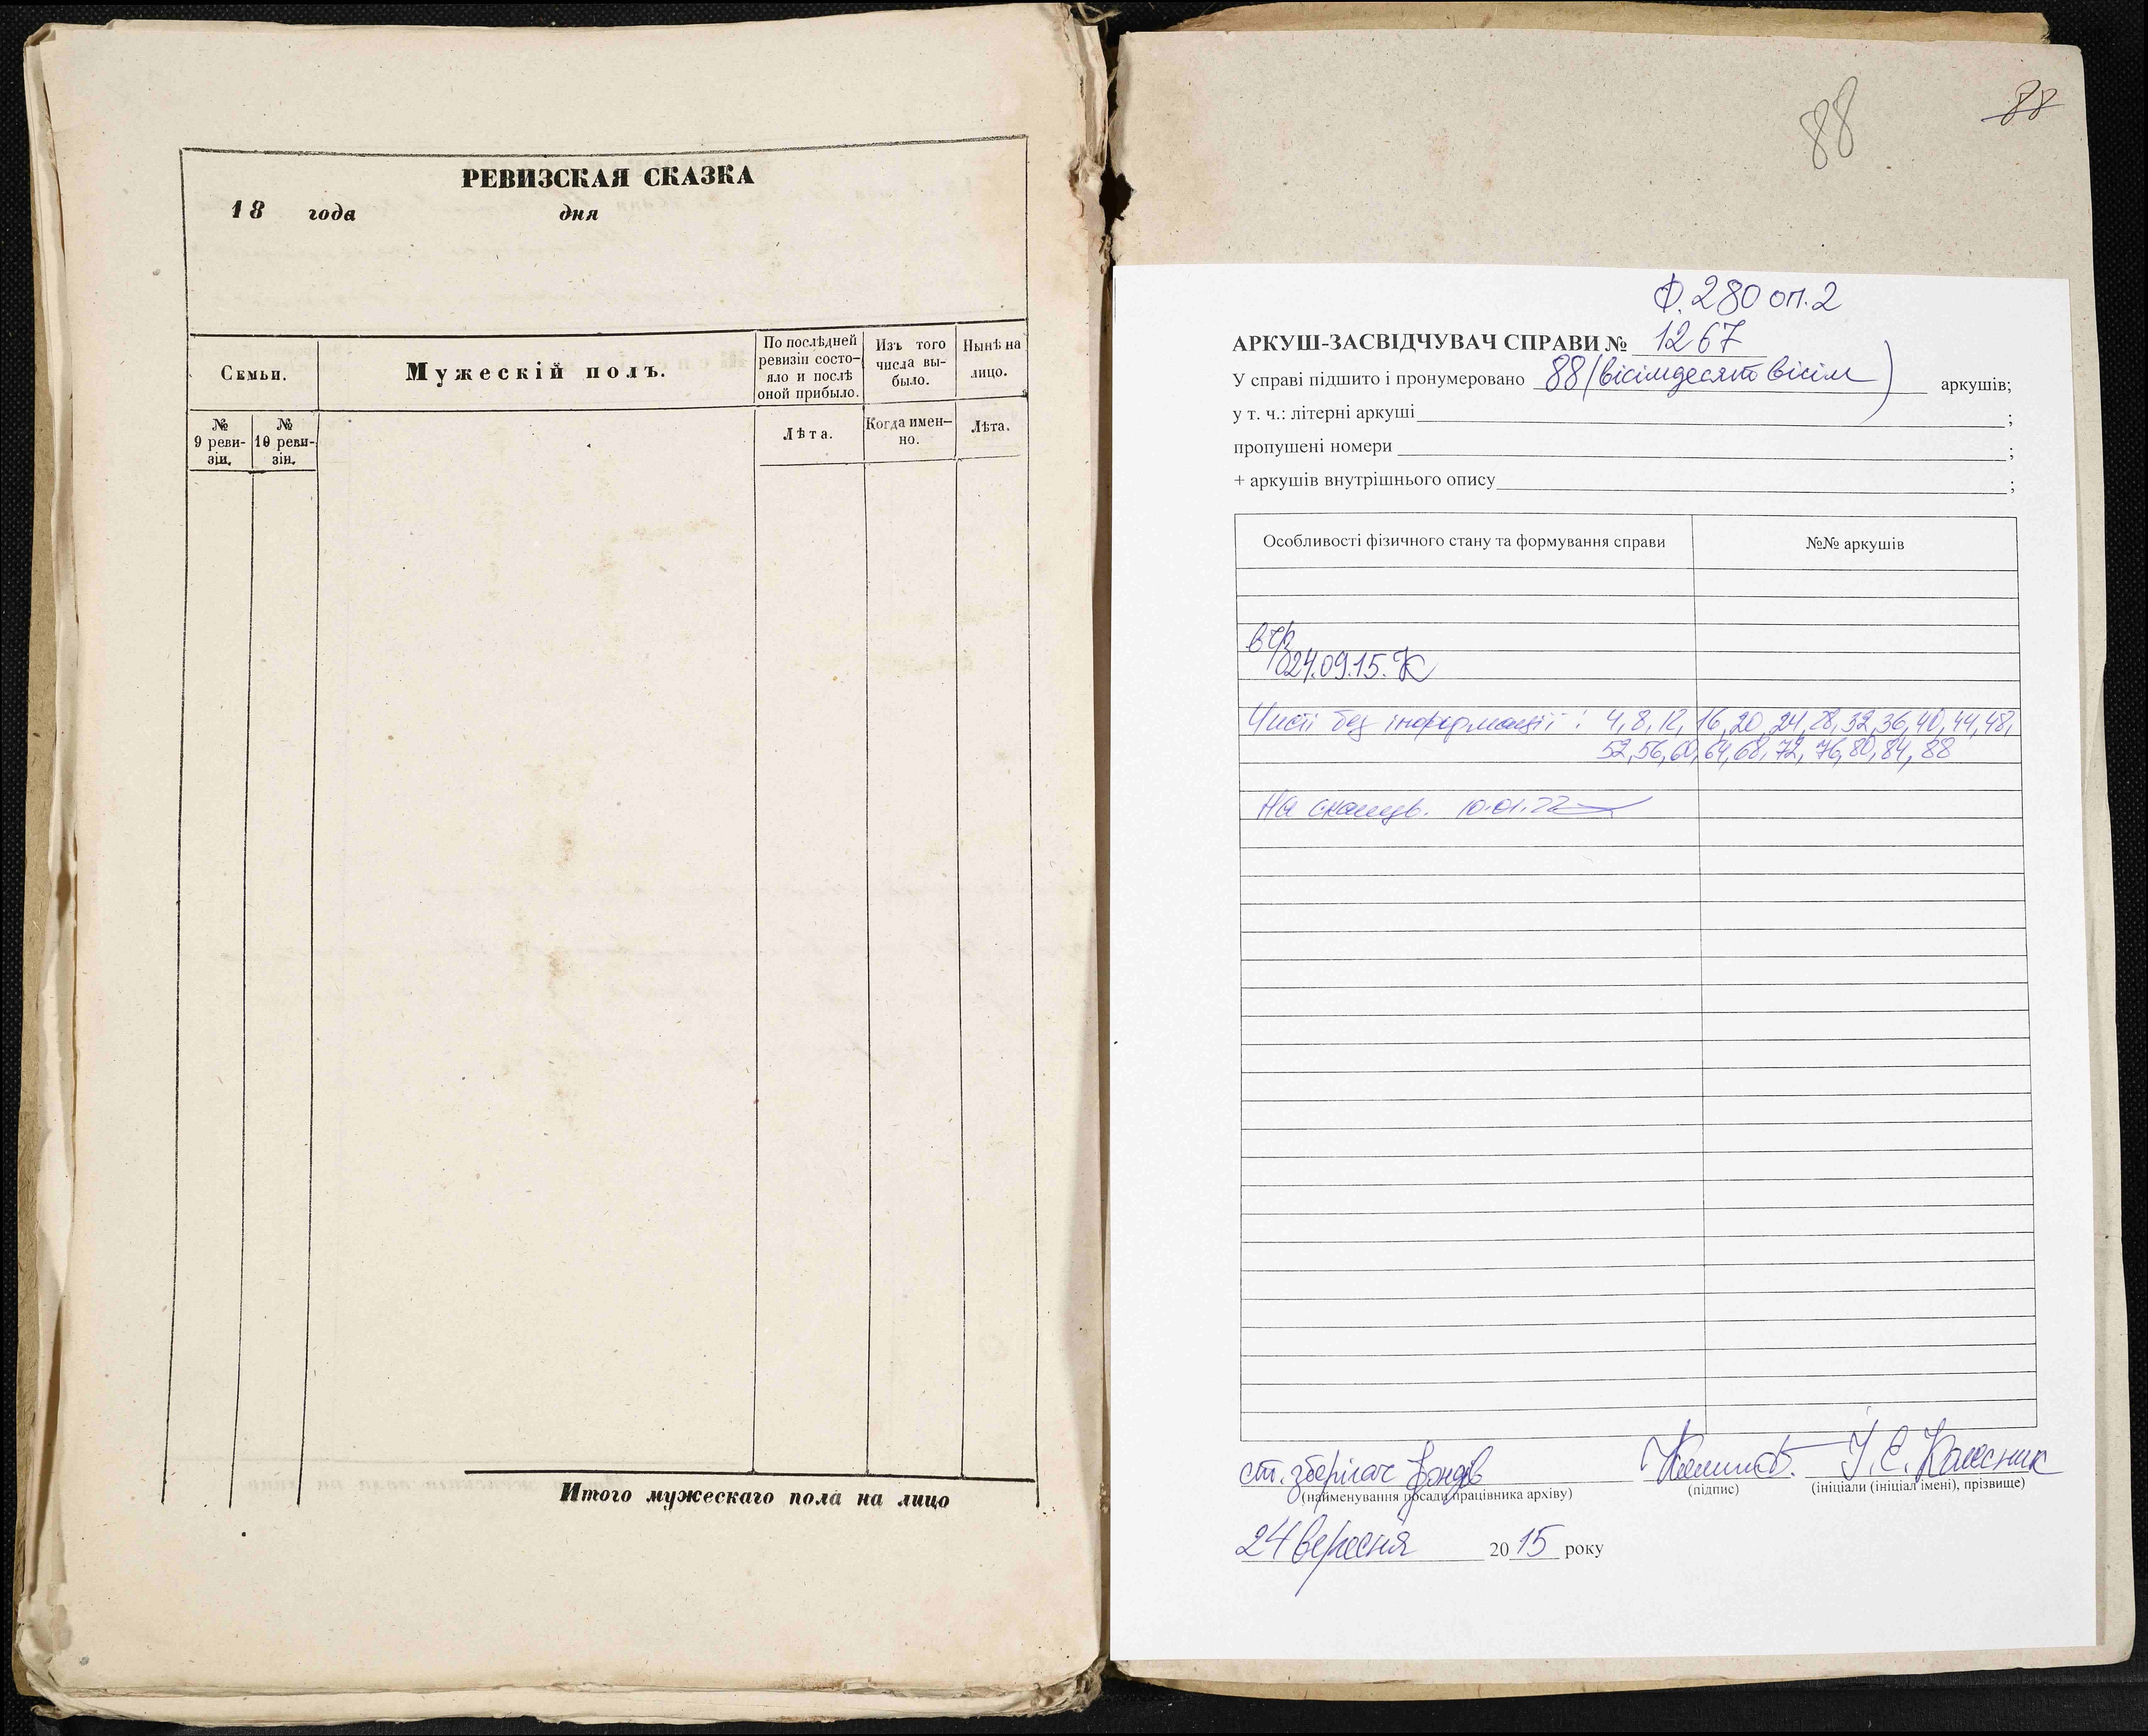 РЕВИЗСКАЯ СКАЗКА
18 года дня
Семьи.
Мужескій полъ.
По послѣдней
ревизіи состо-
яло и послѣ
оной прибыло.
Изъ того
числа вы-
было.
Нынѣ на
лицо.
№
9 реви-
зіи.
№
10 реви-
зіи.
Лѣта.
Когда имен-
но.
Лѣта.
Итого мужескаго пола на лицо
88
88
Ф. 280 оп. 2
АРКУШ-ЗАСВІДЧУВАЧ СПРАВИ № 1267
У справі підшито і пронумеровано 88 (вісімдесят вісім) аркушів;
у т. ч.: літерні аркуші ;
пропущені номери ;
+ аркушів внутрішнього опису ;
Особливості фізичного стану та формування справи
№№ аркушів
24.09.15.
Чисті без інформації: 4, 8, 12, 16, 20, 24, 28, 32, 36, 40, 44, 48,
52, 56, 60, 64, 68, 72, 76, 80, 84, 88
На сканув. 10.01.22
ст. зберігач фондів
І. Є. Колесник
(найменування посади працівника архіву)
(підпис)
(ініціали (ініціал імені), прізвище)
24 вересня 2015 року